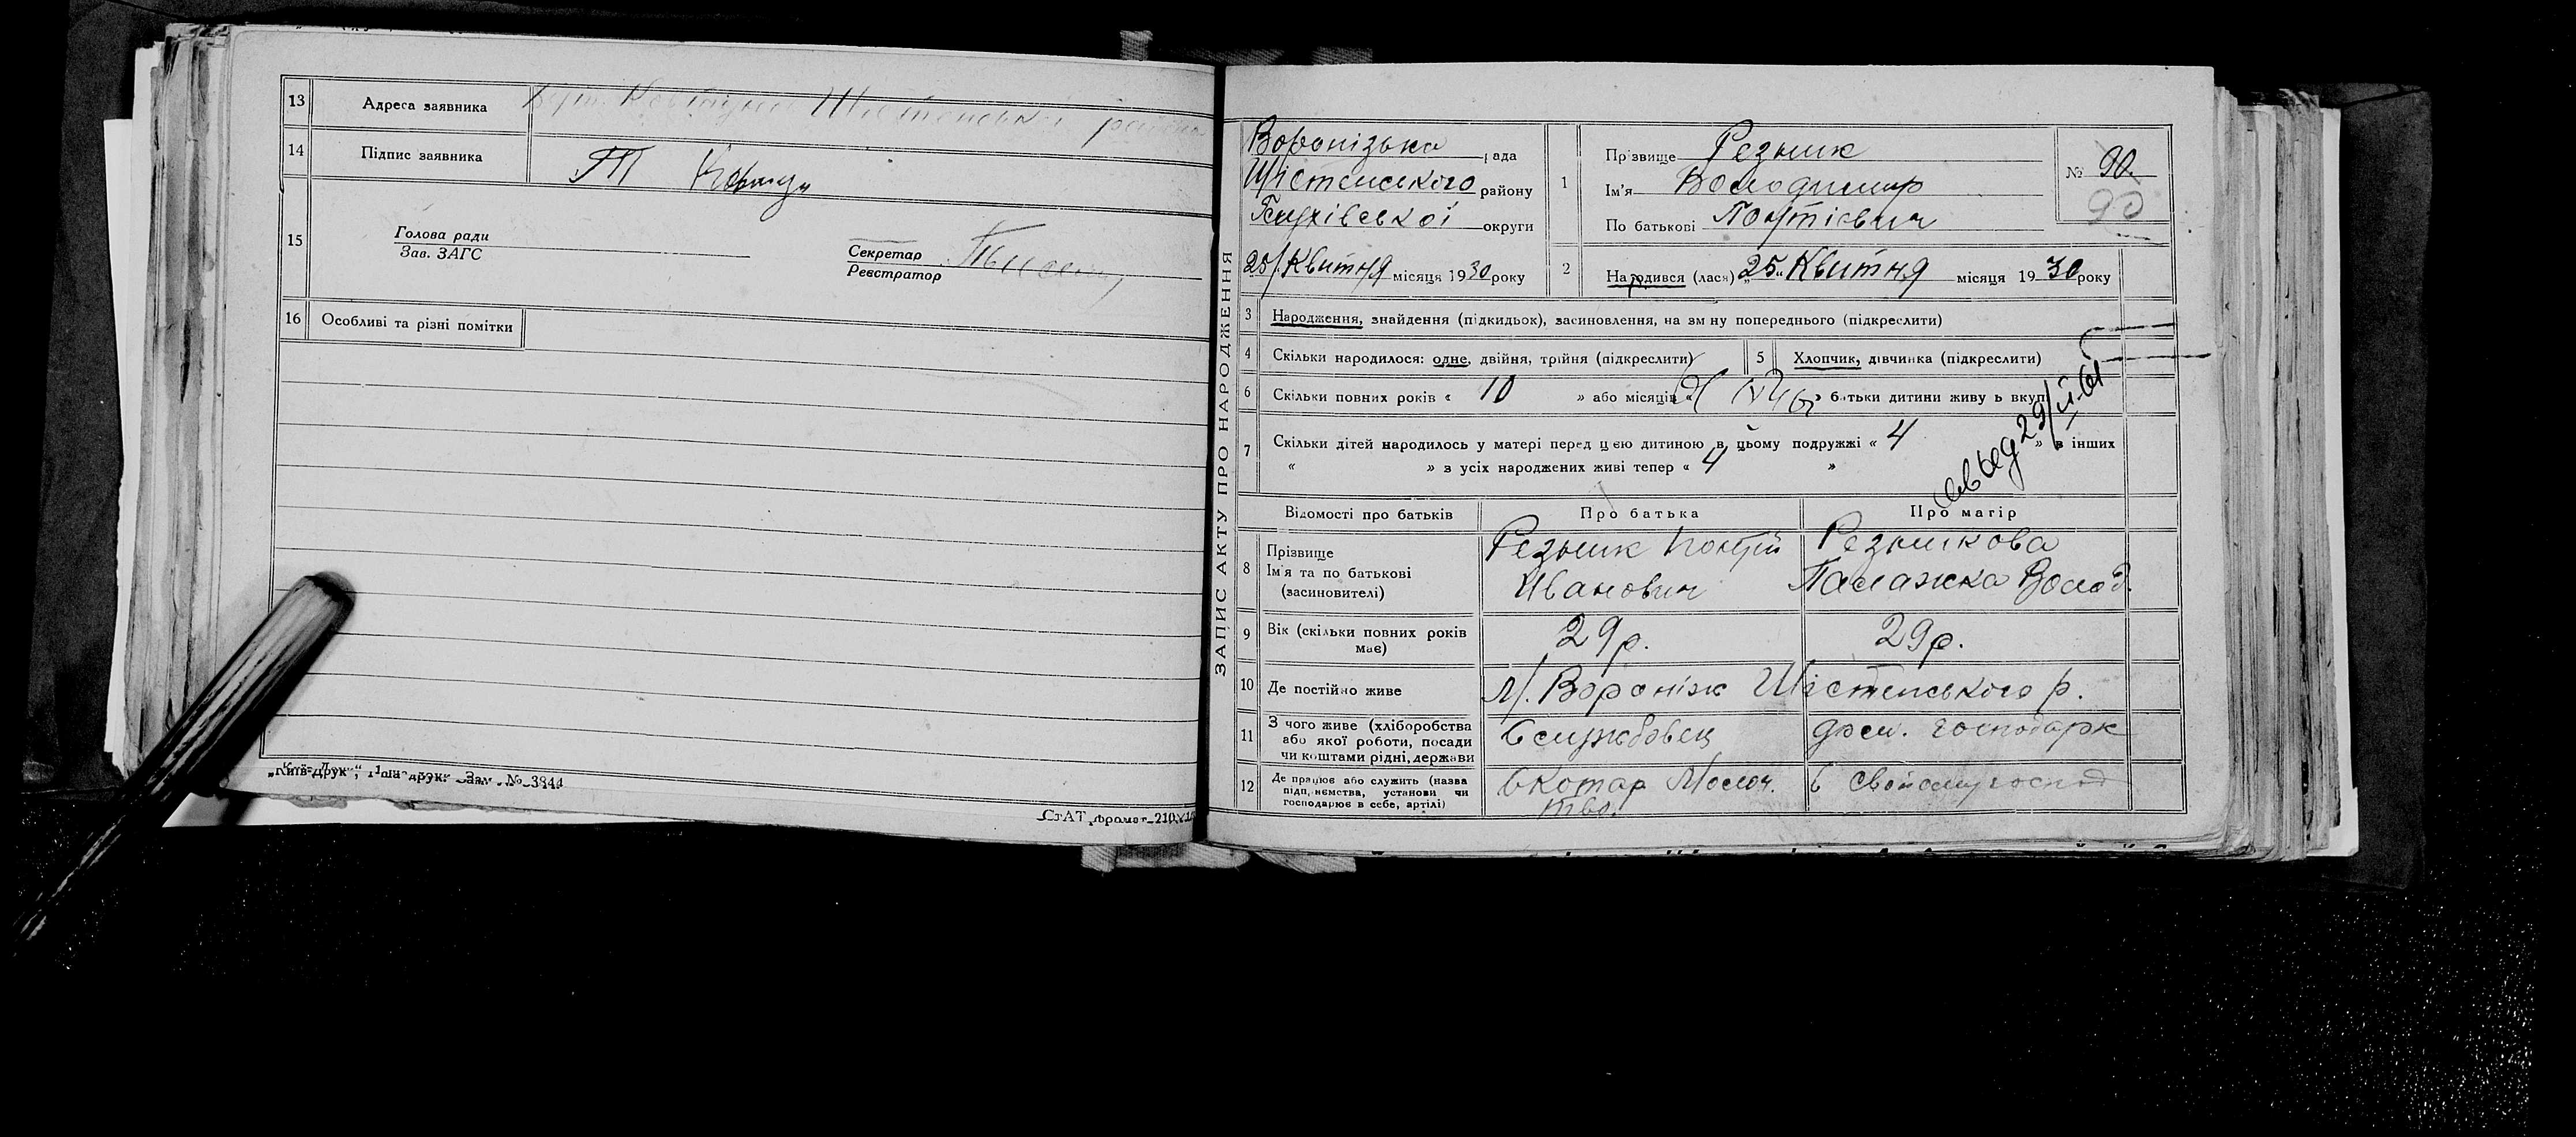 13 Адреса заявника Хут. Шистенськ району
14 Підпис заявника Ковтун
15 Голова ради
Зав. ЗАГС
Секретар
Реєстратор
16 Особливі та різні помітки
„Київ-Друк“, Зам. № 3844
ЗАПИС АКТУ ПРО НАРОДЖЕННЯ
Воронізька рада
Шістенського району
Глухівської округи
25/ Квітня місяця 1930 року
1 Прізвище Резник
Ім'я Володимир
По батькові
№ 90.
90
2 Народився (лася) „25“ Квитня місяця 1930 року
3 Народження, знайдення (підкидьок), засиновлення, на зміну попереднього (підкреслити)
4 Скільки народилося: одне, двійня, трійня (підкреслити)
5 Хлопчик, дівчинка (підкреслити)
6 Скільки повних років « 10 » або місяців « » батьки дитини живуть вкупі
7 Скільки дітей народилось у матері перед цією дитиною в цьому подружжі « 4 » в інших
« » в усіх народжених живі тепер « 4 »
Відомості про батьків Про батька Про матір
8 Прізвище
Ім'я та по батькові
(засиновителі)
Резник
Иванович
Резникова
Палажка Волод.
9 Вік (скільки повних років має) 29 р. 29 р.
10 Де постійно живе М. Вороніж Шістенського р.
11 З чого живе (хліборобства
або якої роботи, посади
чи коштами рідні, держави
Службовец
дом. господарк
12 Де працює або служить (назва
підприємства, установи чи
господарює в себе, артілі)
Молоч.
тво.
в своїому господ